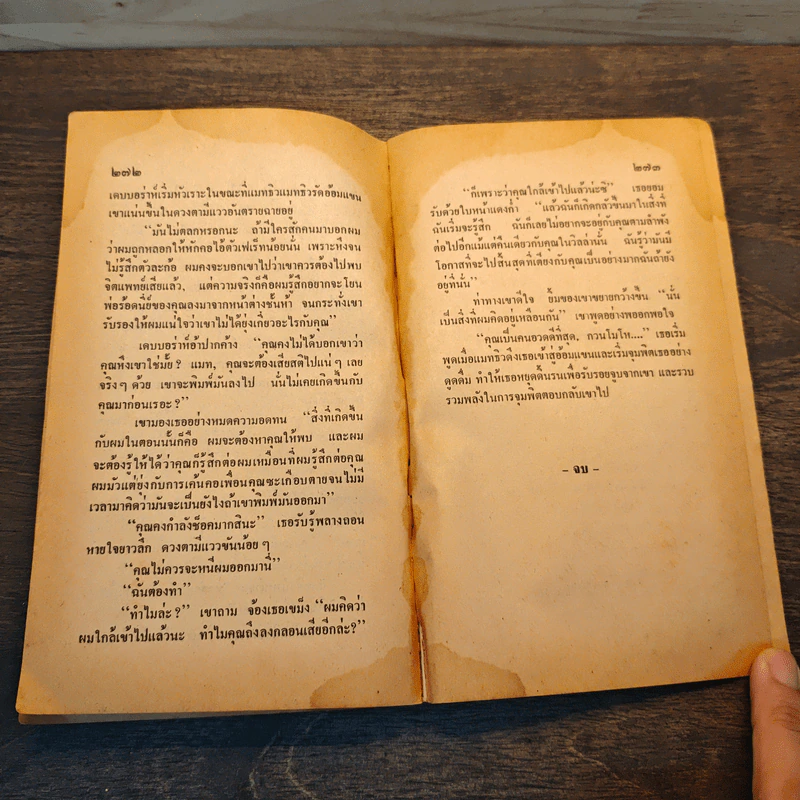 ๒๗๒
เดบบอร่าห์เริ่มหัวเราะในขณะที่แมทธิวแมทธิวรัดอ้อมแขน
เขาแน่นขึ้นในดวงตามีแววอันตรายฉายอยู่
“มันไม่ตลกหรอกนะ ถ้ามีใครสักคนมาบอกผม
ว่าผมถูกหลอกให้หักคอไอ้ตัวเฟเร็ทน้อยนั้น เพราะหึงจน
ไม่รู้สึกตัวละก้อ ผมคงจะบอกเขาไปว่าเขาควรต้องไปพบ
จิตแพทย์เสียแล้ว, แต่ความจริงก็คือผมรู้สึกอยากจะโยน
พ่อร้อดนี่ย์ของคุณลงมาจากหน้าต่างชั้นห้า จนกระทั่งเขา
รับรองให้ผมแน่ใจว่าเขาไม่ได้ยุ่งเกี่ยวอะไรกับคุณ”
เดบบอร่าห์อ้าปากค้าง “คุณคงไม่ได้บอกเขาว่า
คุณหึงเขาใช่มั้ย? แมท, คุณจะต้องเสียสติไปแน่ๆ เลย
จริงๆ ด้วย เขาจะพิมพ์มันลงไป นั่นไม่เคยเกิดขึ้นกับ
คุณมาก่อนเรอะ?”
เขามองเธออย่างหมดความอดทน “สิ่งที่เกิดขึ้น
กับผมในตอนนั้นก็คือ ผมจะต้องหาคุณให้พบ และผม
จะต้องรู้ให้ได้ว่าคุณก็รู้สึกต่อผมเหมือนที่ผมรู้สึกต่อคุณ
ผมมัวแต่ยุ่งกับการเค้นคอเพื่อนคุณซะเกือบตายจนไม่มี
เวลามาคิดว่ามันจะเป็นยังไงถ้าเขาพิมพ์มันออกมา”
“คุณคงกำลังช็อคมากสินะ” เธอรับรู้พลางถอน
หายใจยาวลึก ดวงตามีแววขันน้อยๆ
“คุณไม่ควรจะหนีผมออกมานี่”
“ฉันต้องทำ”
“ทำไมล่ะ?” เขาถาม จ้องเธอเขม็ง “ผมคิดว่า
ผมใกล้เข้าไปแล้วนะ ทำไมคุณถึงลงกลอนเสียอีกล่ะ?”
๒๗๓
“ก็เพราะว่าคุณใกล้เข้าไปแล้วน่ะซิ” เธอยอม
รับด้วยใบหน้าแดงก่ำ “แล้วฉันก็เกิดกลัวขึ้นมาในสิ่งที่
ฉันเริ่มจะรู้สึก ฉันก็เลยไม่อยากจะอยู่กับคุณตามลำพัง
ต่อไปอีกแม้แต่คืนเดียวกับคุณในวิลล่านั้น ฉันรู้ว่ามันมี
โอกาสที่จะไปสิ้นสุดที่เตียงกับคุณเป็นอย่างมากฉันถ้ายัง
อยู่ที่นั่น”
ท่าทางเขาดีใจ ยิ้มของเขาขยายกว้างขึ้น “นั่น
เป็นสิ่งที่ผมคิดอยู่เหลือนกัน” เขาพูดอย่างพออกพอใจ
“คุณเป็นคนอวดดีที่สุด, กวนโมโห....” เธอเริ่ม
พูดเมื่อแมทธิวดึงเธอเข้าสู่อ้อมแขนและเริ่มจุมพิตเธออย่าง
ดูดดื่ม ทำให้เธอหยุดดิ้นรนเพื่อรับรอยจูบจากเขา และรวบ
รวมพลังในการจุมพิตตอบกลับเขาไป
- จบ -